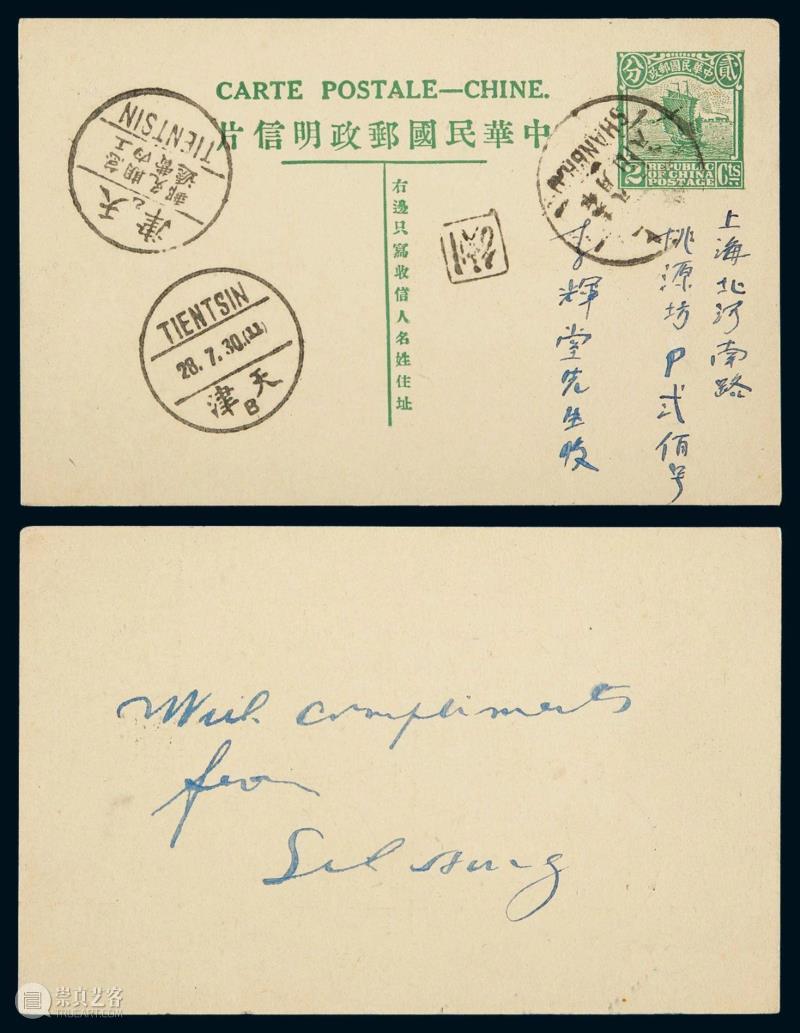 CARTE POSTALE—CHINE.
片信明政郵國民華中
分 政郵國民華中 貳
2 REPUBLIC OF CHINA POSTAGE Cts
右邊只寫收信人名姓住址
上海北河南路
桃源坊P弍佰号
李輝堂先生收
SHANGHAI
TIENTSIN
津 天
TIENTSIN
28.7.30.
津 天
B
With compliments
from
崇真艺客
TRUEART.COM